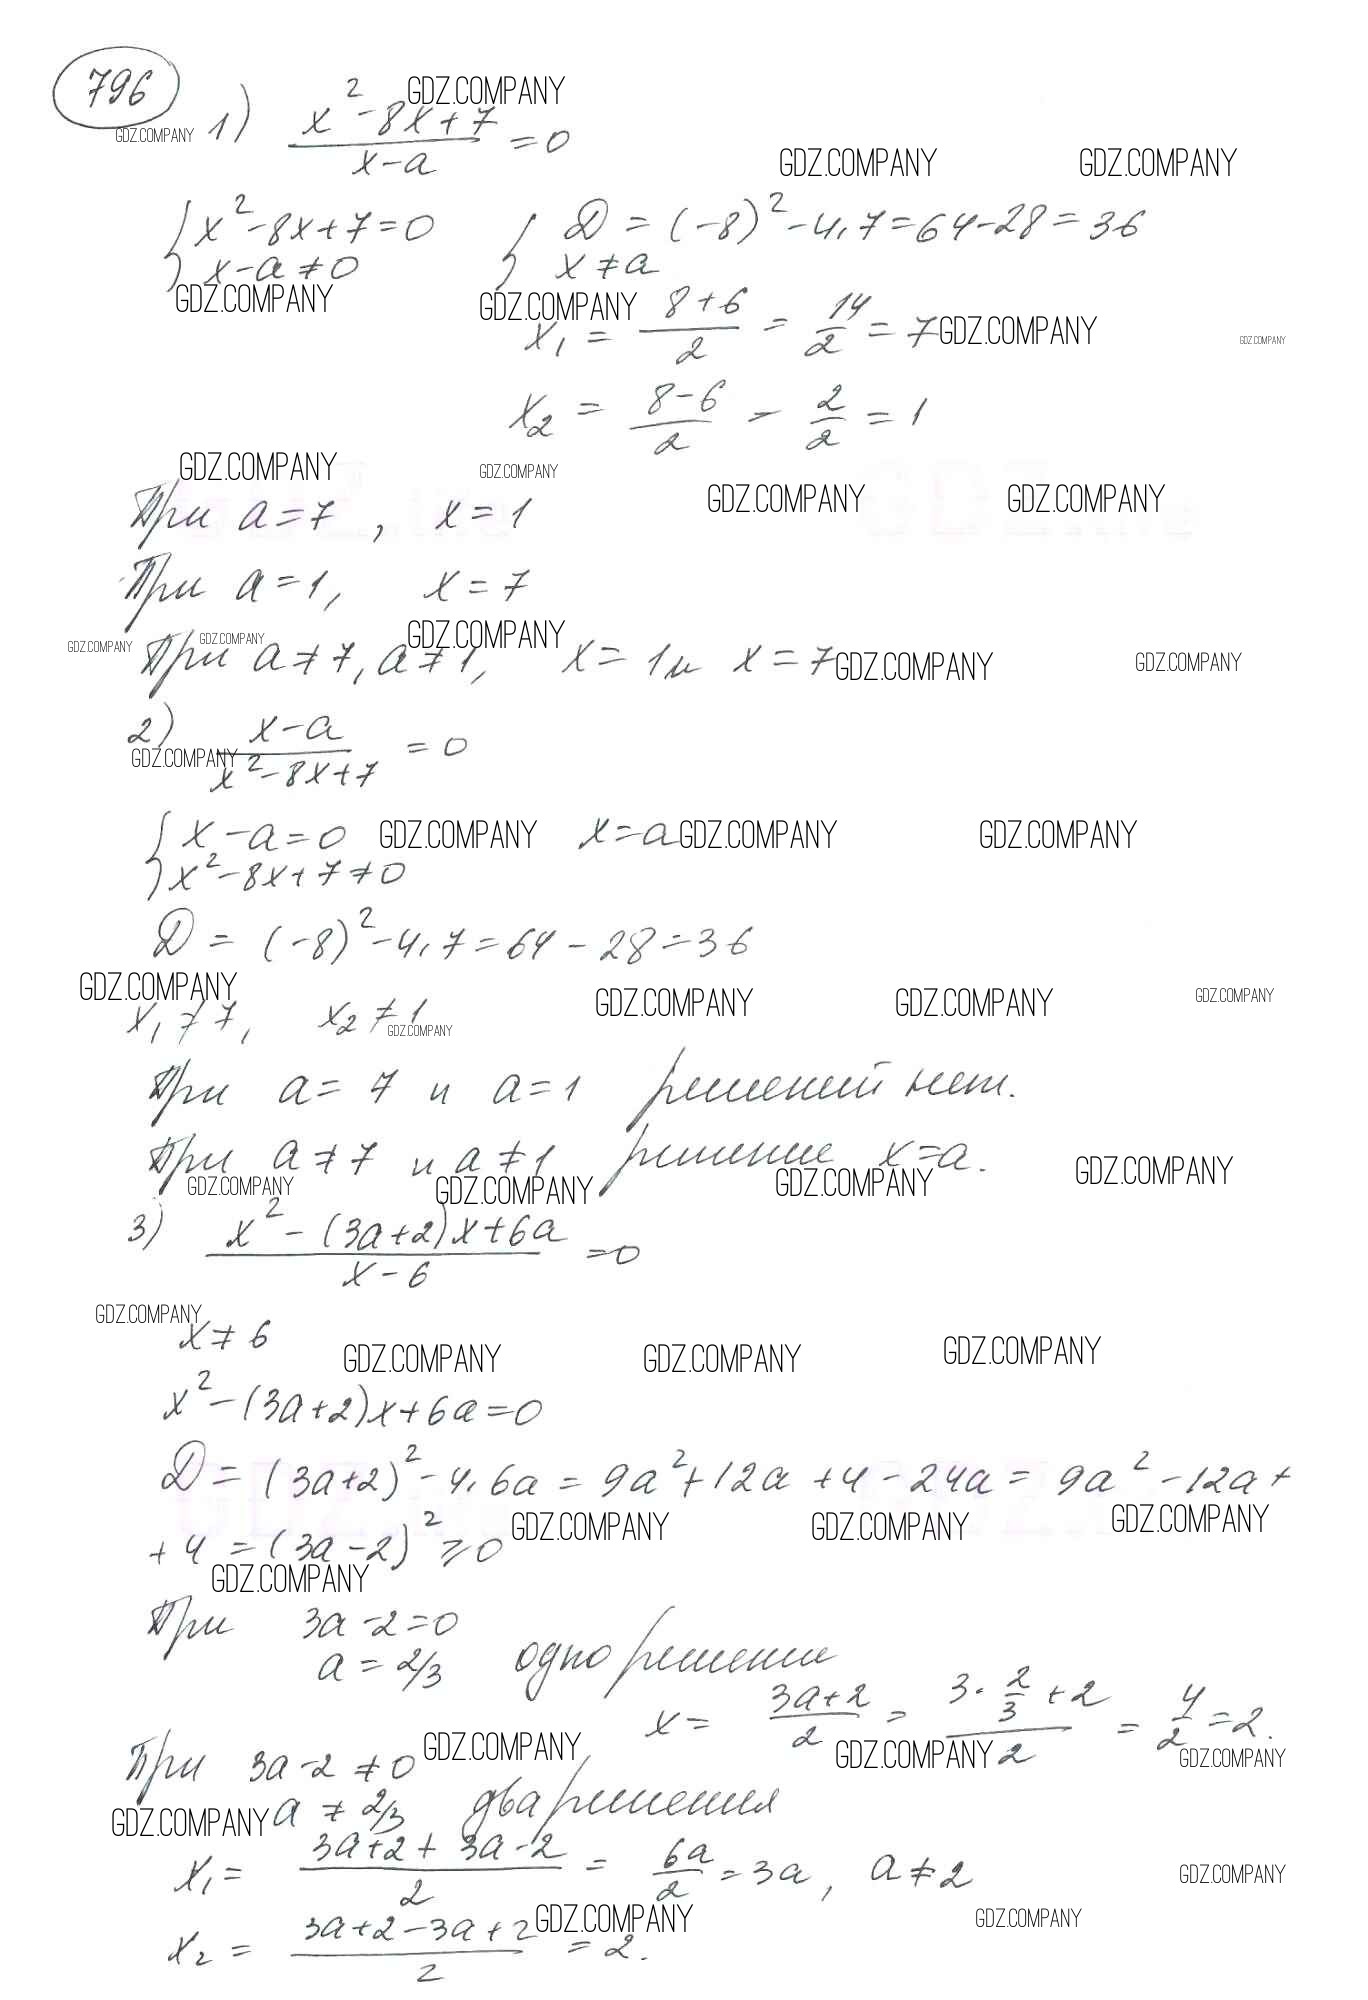 796
GDZ.COMPANY
GDZ.COMPANY 1) x² - 8x + 7 / x - a = 0
GDZ.COMPANY GDZ.COMPANY
{ x² - 8x + 7 = 0 { D = (-8)² - 4·7 = 64 - 28 = 36
x - a ≠ 0 x ≠ a
GDZ.COMPANY GDZ.COMPANY
x₁ = 8+6 / 2 = 14/2 = 7 GDZ.COMPANY GDZ.COMPANY
x₂ = 8-6 / 2 = 2/2 = 1
GDZ.COMPANY GDZ.COMPANY GDZ.COMPANY GDZ.COMPANY
При a = 7, x = 1
При a = 1, x = 7
GDZ.COMPANY GDZ.COMPANY GDZ.COMPANY
При a ≠ 7, a ≠ 1, x = 1 и x = 7 GDZ.COMPANY GDZ.COMPANY
2) x - a / x² - 8x + 7 = 0
GDZ.COMPANY
{ x - a = 0 GDZ.COMPANY x = a GDZ.COMPANY GDZ.COMPANY
x² - 8x + 7 ≠ 0
D = (-8)² - 4·7 = 64 - 28 = 36
GDZ.COMPANY GDZ.COMPANY GDZ.COMPANY GDZ.COMPANY
x₁ ≠ 7, x₂ ≠ 1 GDZ.COMPANY
При a = 7 и a = 1 решений нет.
При a ≠ 7 и a ≠ 1 решение x = a.
GDZ.COMPANY GDZ.COMPANY GDZ.COMPANY GDZ.COMPANY
3) x² - (3a+2)x + 6a / x - 6 = 0
GDZ.COMPANY
x ≠ 6
GDZ.COMPANY GDZ.COMPANY GDZ.COMPANY
x² - (3a+2)x + 6a = 0
D = (3a+2)² - 4·6a = 9a² + 12a + 4 - 24a = 9a² - 12a +
+ 4 = (3a-2)² ≥ 0 GDZ.COMPANY GDZ.COMPANY GDZ.COMPANY
GDZ.COMPANY
При 3a - 2 = 0
a = 2/3 одно решение
x = 3a+2 / 2 = 3·2/3 + 2 / 2 = 4/2 = 2.
При 3a - 2 ≠ 0 GDZ.COMPANY GDZ.COMPANY GDZ.COMPANY
GDZ.COMPANY a ≠ 2/3 два решения
x₁ = 3a+2+3a-2 / 2 = 6a/2 = 3a, a ≠ 2 GDZ.COMPANY
GDZ.COMPANY GDZ.COMPANY
x₂ = 3a+2-3a+2 / 2 = 2.